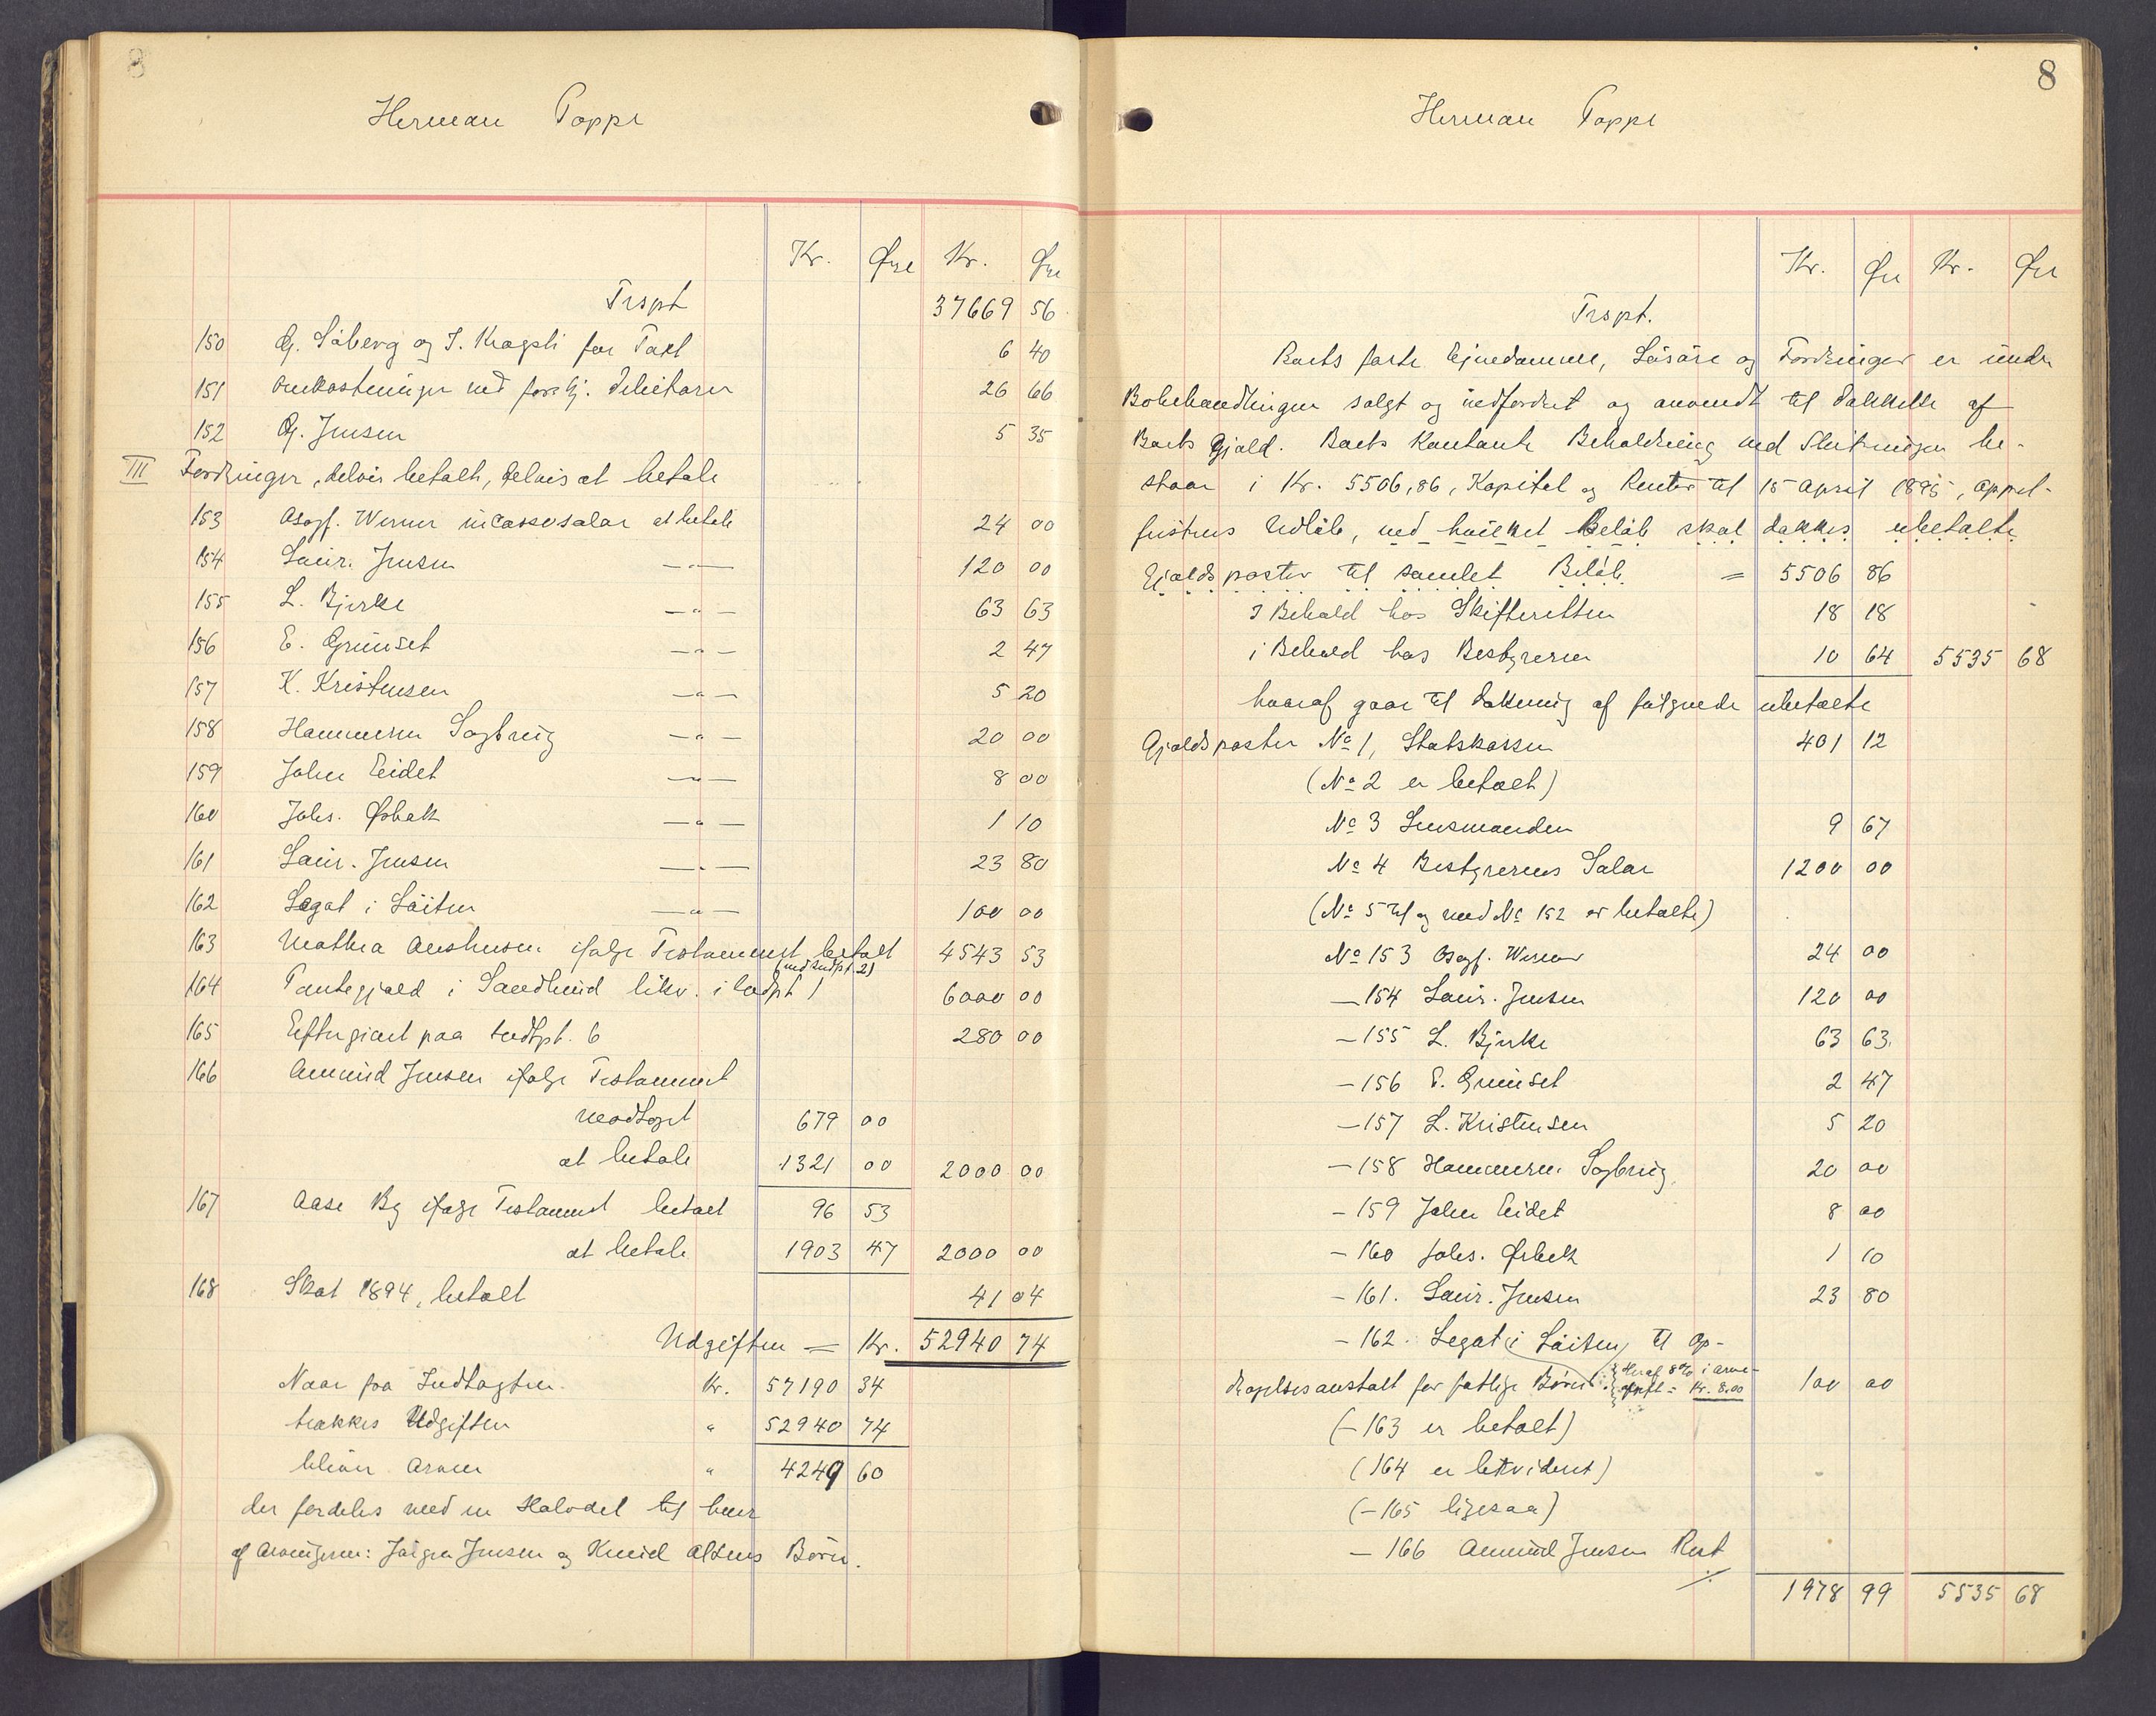 8
Herman Poppe
Kr. Øre Kr. Øre
Trspt 37669 56
150 G. Såberg og J. for Taxt 6 40
151 Omkostninger ved forskj. Debitorer 26 66
152 G. Jensen 5 35
III Fordringer, delvis betalt, delvis at betale
153 Osagf. Werner incassosalar at betale 24 00
154 Laur. Jensen —"— 120 00
155 L. Bjerke —"— 63 63
156 E. Grunset —"— 2 47
157 K. Kristensen —"— 5 20
158 Hammeren Sagbrug —"— 20 00
159 Johan Eidet —"— 8 00
160 Johs. —"— 1 10
161 Laur. Jensen —"— 23 80
162 Legat i Löiten —"— 100 00
163 Mathea ifølge Testament betalt 4543 53
(ved Indpt. 2)
164 Pantegjæld i Sandlund likv. i Indpt 1 6000 00
165 Eftergivet paa Indtpt. 6 280 00
166 Amund Jensen ifølge Testament
modtaget 679 00
at betale 1321 00 2000 00
167 Aase By ifølge Testament betalt 96 53
at betale 1903 47 2000 00
168 Skat 1894, betalt 41 04
Udgiften = Kr. 52940 74
Naar fra Indtægten Kr. 57190 34
trækkes Udgiften " 52940 74
bliver Arven " 4249 60
der fordeles med en Halvdel til hver
af Arvingerne: Jörgen Jensen og Knud Olsens Börn.
8
Herman Poppe
Kr. Øre Kr. Øre
Trspt.
Boets faste Ejendomme, Lösöre og Fordringer er under
Bobehandlingen solgt og indfordret og anvendt til Dækkelse af
Boets Gjæld. Boets Kontante Beholdning ved Slutningen be-
staar i Kr. 5506,86, Kapital og Renter til 15 April 1895, appel-
fristens Udlöb, ved hvilket Belöb skal dækkes ubetalte
Gjældsposter til samlet Belöb = 5506 86
I Behold hos Skifteretten 18 18
i Behold hos Bestyreren 10 64 5535 68
hvoraf gaar til Dækning af fölgende ubetalte
Gjældsposter No 1, Statskassen 401 12
(No 2 er betalt)
No 3 Lensmanden 9 67
No 4 Bestyrerens Salar 1200 00
(No 5 til og med No 152 er betalte)
No 153 Osagf. Werner 24 00
— 154 Laur. Jensen 120 00
— 155 L. Bjerke 63 63
— 156 E. Grunset 2 47
— 157 L. Kristensen 5 20
— 158 Hammeren Sagbrug 20 00
— 159 Johan Eidet 8 00
— 160 Johs. 1 10
— 161. Laur. Jensen 23 80
— 162. Legat i Löiten til Op-
dragelsesanstalt for fattige Börn. {Heraf 8% i Arve-
afgft = Kr. 8.00 100 00
(— 163 er betalt)
(164 er likvideret)
(— 165 ligesaa)
— 166 Amund Jensen Rest
1978 99 5535 68